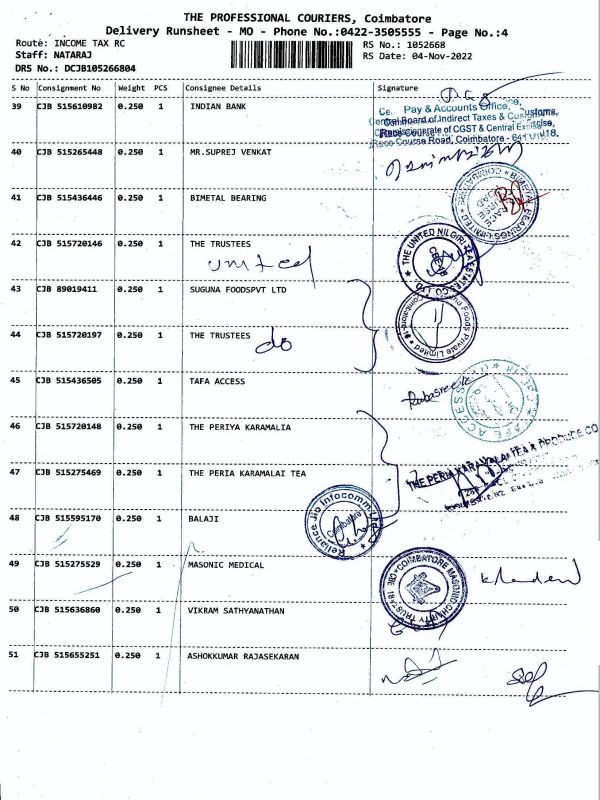 THE PROFESSIONAL COURIERS, Coimbatore
Delivery Runsheet - MO - Phone No.:0422-3505555 - Page No.:4
Route: INCOME TAX RC RS No.: 1052668
Staff: NATARAJ RS Date: 04-Nov-2022
DRS No.: DCJB105266804
S No Consignment No Weight PCS Consignee Details Signature
39 CJB 515610982 0.250 1 INDIAN BANK
Pay & Accounts Office,
Central Board of Indirect Taxes & Customs,
CGST & Central Excise,
Race Course Road, Coimbatore - 641 018.
40 CJB 515265448 0.250 1 MR.SUPREJ VENKAT
41 CJB 515436446 0.250 1 BIMETAL BEARING
BIMETAL BEARINGS LIMITED COIMBATORE
42 CJB 515720146 0.250 1 THE TRUSTEES
United
THE UNITED NILGIRI TEA ESTATES CO LTD
43 CJB 89019411 0.250 1 SUGUNA FOODSPVT LTD
Foods Private Limited
44 CJB 515720197 0.250 1 THE TRUSTEES
do
45 CJB 515436505 0.250 1 TAFA ACCESS
46 CJB 515720148 0.250 1 THE PERIYA KARAMALIA
47 CJB 515275469 0.250 1 THE PERIA KARAMALAI TEA
THE PERIA KARAMALAI TEA & PRODUCE CO
48 CJB 515595170 0.250 1 BALAJI
Reliance Jio Infocomm Ltd
Coimbatore
49 CJB 515275529 0.250 1 MASONIC MEDICAL
COIMBATORE MASONIC CHARITY TRUST
50 CJB 515636860 0.250 1 VIKRAM SATHYANATHAN
51 CJB 515655251 0.250 1 ASHOKKUMAR RAJASEKARAN